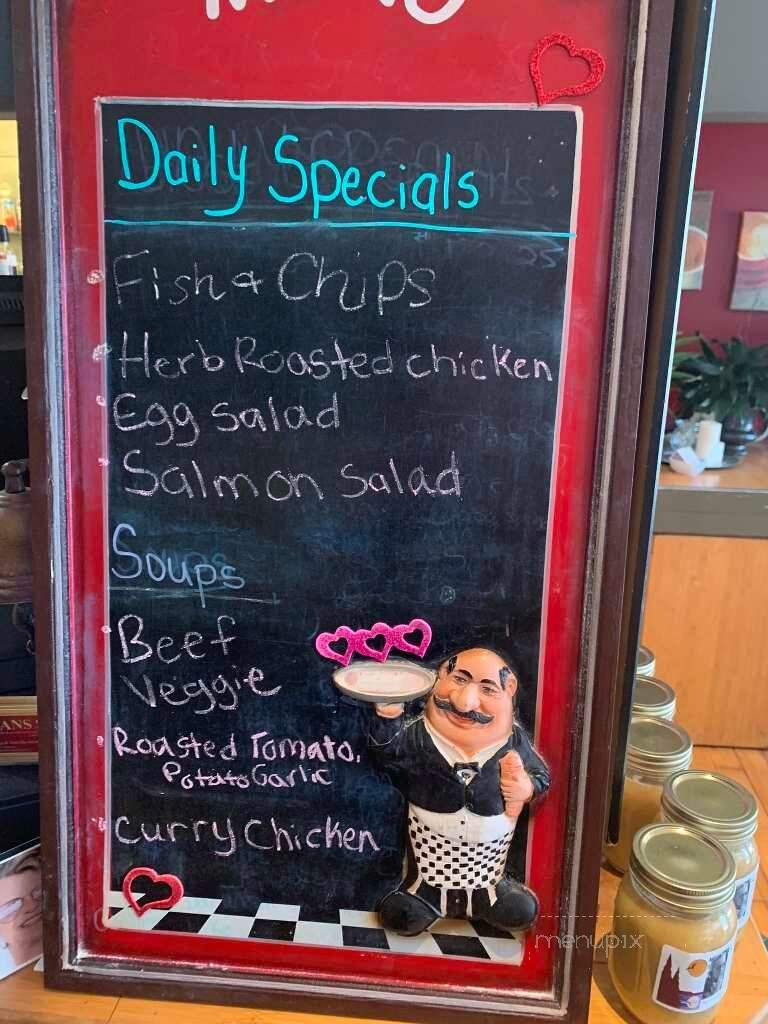 Daily Specials
Fish & Chips
Herb Roasted chicken
Egg salad
Salmon salad
Soups
Beef
Veggie
Roasted Tomato,
Potato Garlic
Curry Chicken
menupix